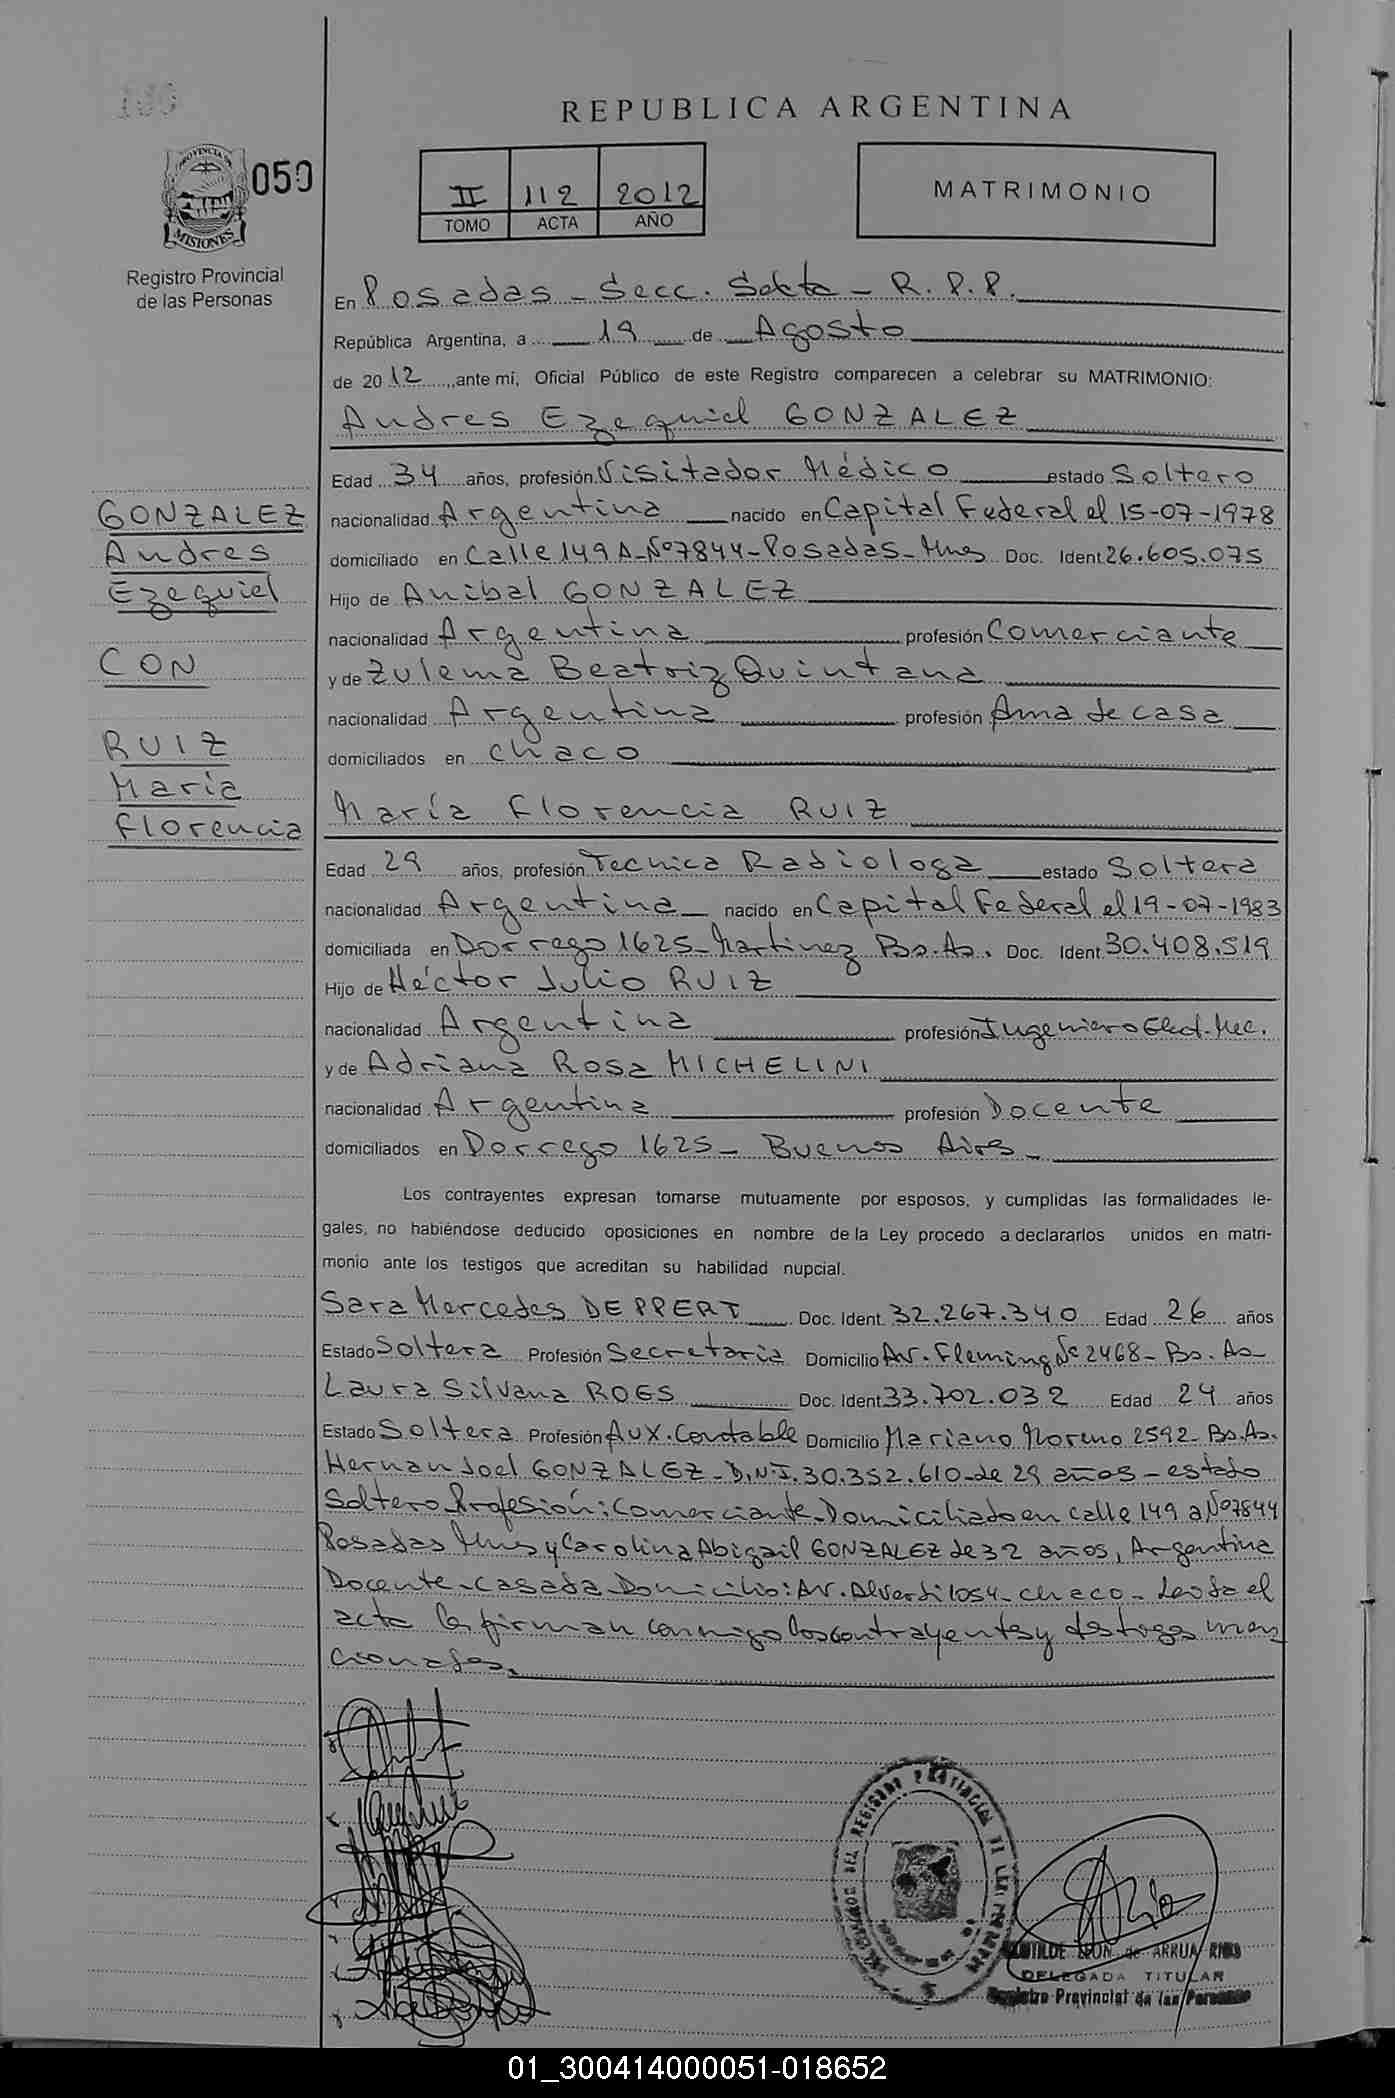 REPUBLICA ARGENTINA
PROVINCIA DE
MISIONES
050
II 112 2012
TOMO ACTA AÑO
MATRIMONIO
Registro Provincial
de las Personas
En Posadas - Secc. Sexta - R.P.P.
República Argentina, a 19 de Agosto
de 2012, ante mí, Oficial Público de este Registro comparecen a celebrar su MATRIMONIO:
Andres Ezequiel GONZALEZ
Edad 34 años, profesión Visitador Médico estado Soltero
nacionalidad Argentina nacido en Capital Federal el 15-07-1978
domiciliado en Calle 149 A-Nº7844-Posadas-Mnes Doc. Ident 26.605.075
Hijo de Anibal GONZALEZ
nacionalidad Argentina profesión Comerciante
y de Zulema Beatriz Quintana
nacionalidad Argentina profesión Ama de casa
domiciliados en Chaco
GONZALEZ
Andres
Ezequiel
CON
RUIZ
María
Florencia
María Florencia RUIZ
Edad 29 años, profesión Tecnica Radiologa estado Soltera
nacionalidad Argentina nacido en Capital Federal el 19-07-1983
domiciliada en Dorrego 1625-Martinez Bs.As. Doc. Ident. 30.408.519
Hijo de Héctor Julio RUIZ
nacionalidad Argentina profesión Ingeniero Elect.Mec.
y de Adriana Rosa MICHELINI
nacionalidad Argentina profesión Docente
domiciliados en Dorrego 1625- Buenos Aires-
Los contrayentes expresan tomarse mutuamente por esposos, y cumplidas las formalidades le-
gales, no habiéndose deducido oposiciones en nombre de la Ley procedo a declararlos unidos en matri-
monio ante los testigos que acreditan su habilidad nupcial.
Sara Mercedes DEPPERT Doc. Ident. 32.267.340 Edad 26 años
Estado Soltera Profesión Secretaria Domicilio Av. Fleming Nº 2468- Bs. As
Laura Silvana ROES Doc. Ident 33.702.032 Edad 24 años
Estado Soltera Profesión Aux. Contable Domicilio Mariano Moreno 2592- Bs.As.
Hernan Joel GONZALEZ-D.N.I.30.352.610-de 29 años-estado
Soltero-Profesión: Comerciante-Domiciliado en calle 149 a Nº7844
Posadas Mnes y Carolina Abigail GONZALEZ de 32 años, Argentina
Docente-Casada-Domicilio: Av. Alverdi 1054-Chaco- Leida el
acta la firman conmigo los contrayentes y testigos men
cionados.
DEL REGISTRO PROVINCIAL DE LAS
CLOTILDE LEON de ARRUA RIOS
DELEGADA TITULAR
Registro Provincial de las Personas
01_300414000051-018652